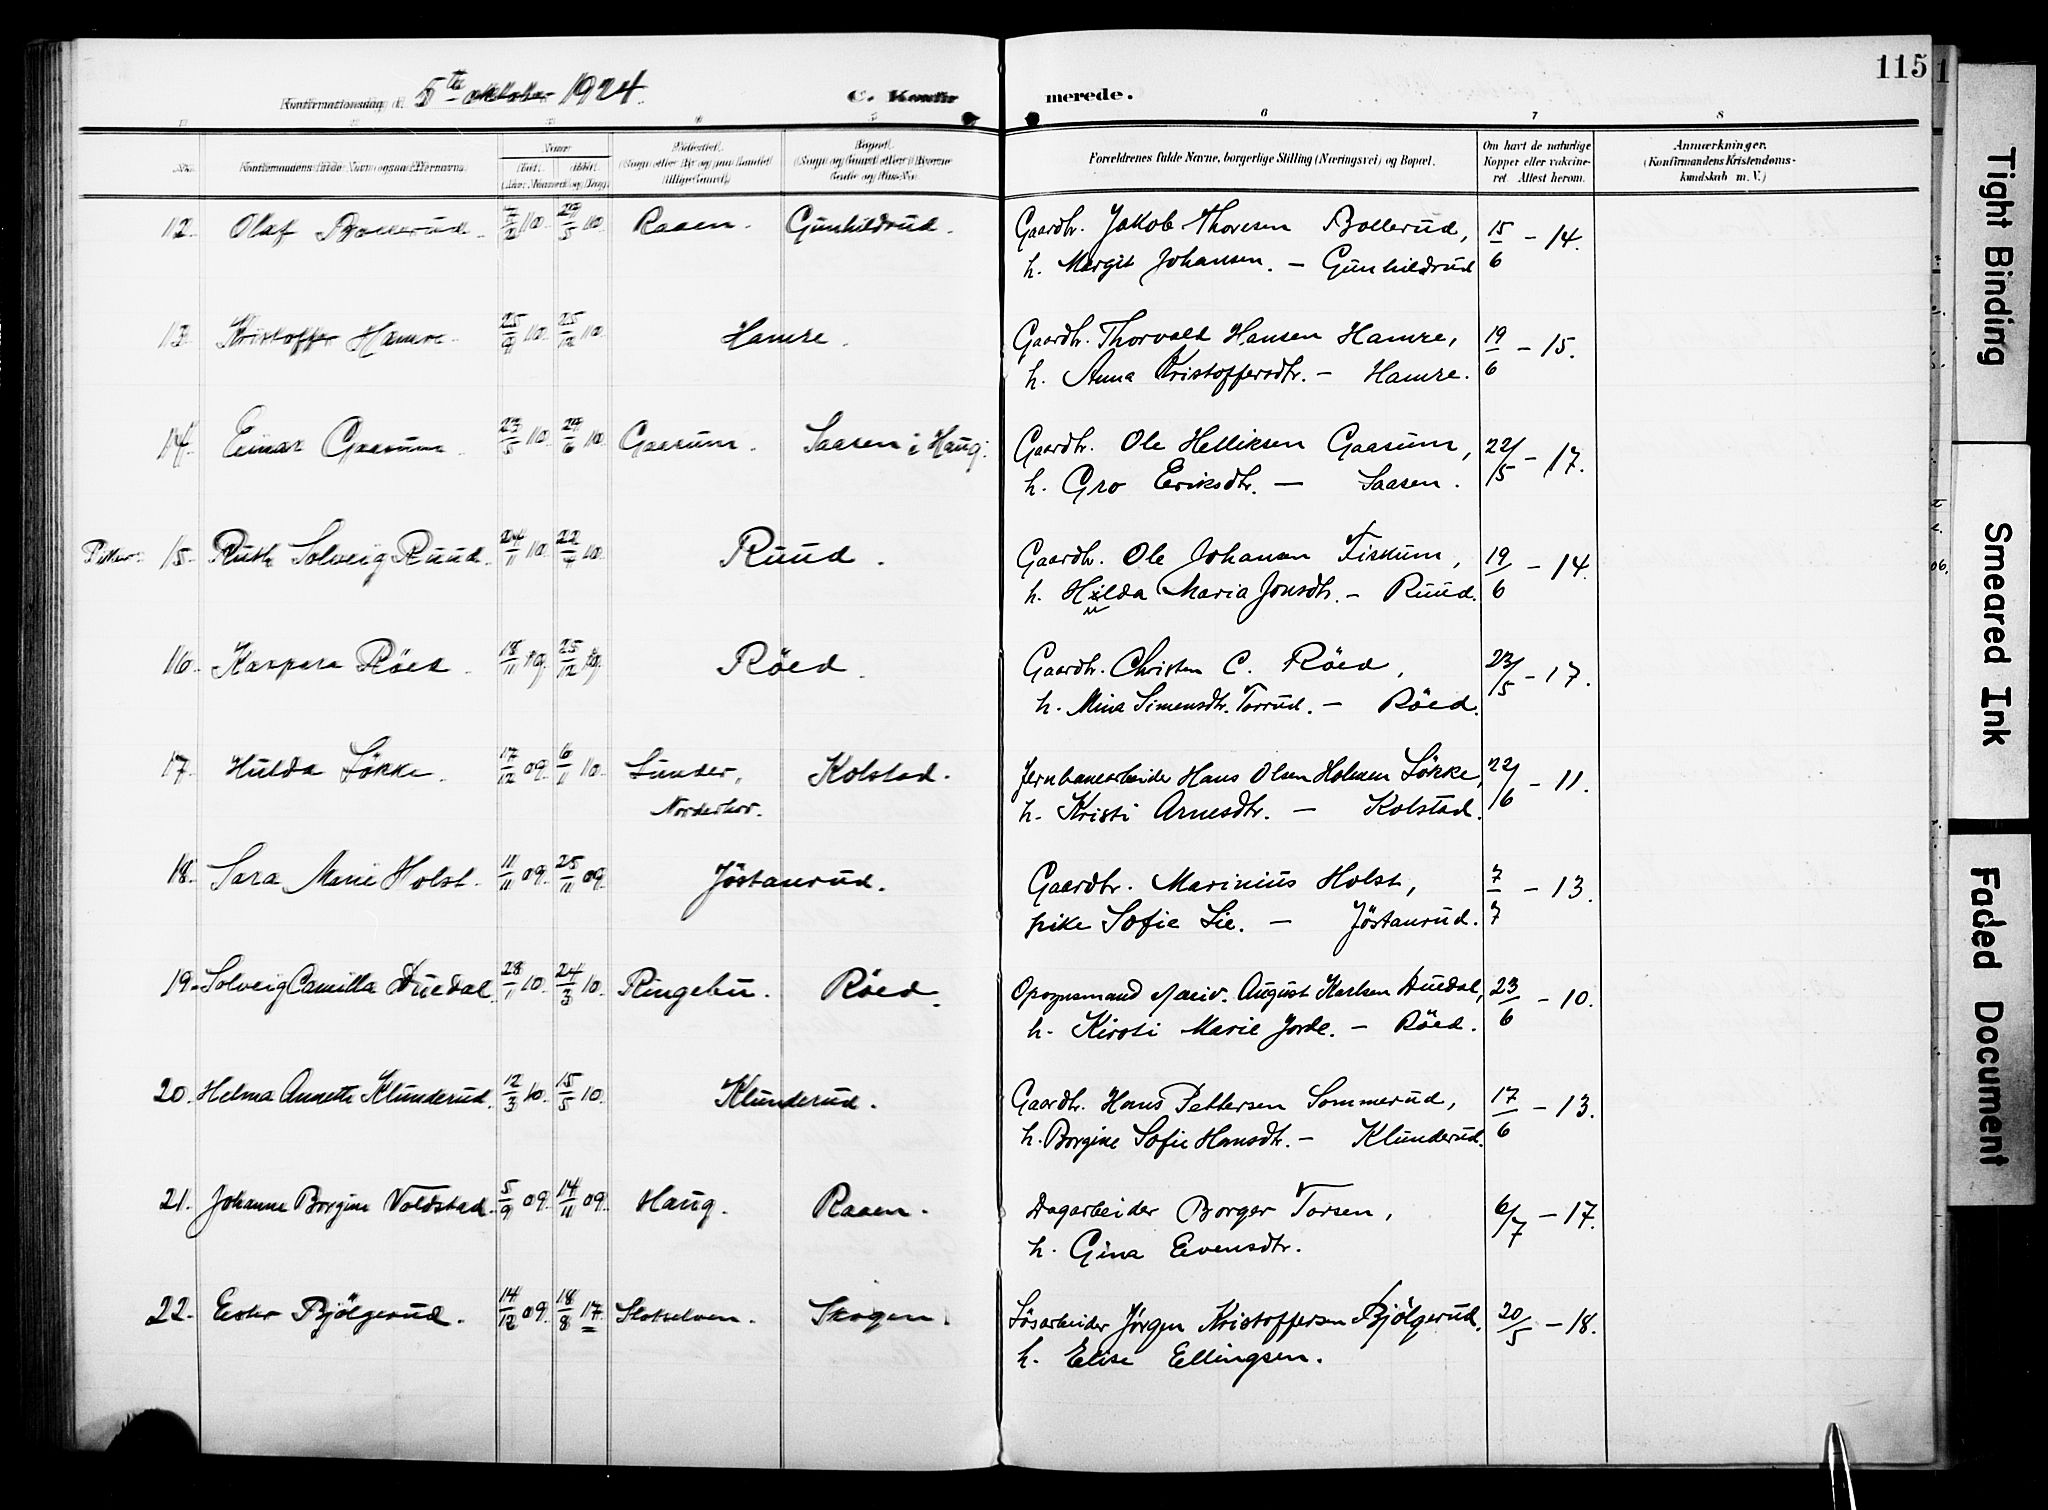 115
Konfirmationsdag d. 5te oktober 1924.
C. Konfirmerede.
6 7 8
Konfirmandens fulde Navn (ogsaa Efternavn).
Naar
Født Døbt
(Aar, Maaned og Dag).
Fødested.
Bopæl.
Forældrenes fulde Navne, borgerlige Stilling (Næringsvei) og Bopæl.
Om havt de naturlige Kopper eller vakcineret. Attest herom.
Anmærkninger. (Konfirmandens Kristendomskundskab m. V.)
12. Olaf Bollerud. 10. 29/5 10. Raaen. Gunhildrud. Gaardbr. Jakob Thoresen Bollerud, 15/6 - 14.
h. Margit Johansen. - Gunhildrud
13. Kristoffer Hamre. 25/9 10. 25/12 10. Hamre. Gaardbr. Thorvald Hansen Hamre, 19/6 - 15.
h. Anna Kristoffersdtr. - Hamre.
14. Einar Gaasum. 23/5 10. 29/6 10. Gaasum. Saasen i Haug. Gaardbr. Ole Helliksen Gaasum, 22/5 - 17.
h. Gro Eriksdtr. - Saasen.
Piker: 15. Ruth Solveig Ruud. 24/11 10. 22/4 10. Ruud. Gaardbr. Ole Johansen Fiskum, 19/6 - 14.
h. Hilda Maria Jonsdtr. - Ruud.
16. Kaspara Röed. 18/11 09. 25/12 09. Röed. Gaardbr. Christen C. Röed, 23/5 - 17.
h. Mina Simensdtr. Torrud. - Röed.
17. Hulda Lökke. 17/12 09. 6/11 10. Lunder, Norderhov. Kolstad. Jernbanearbeider Hans Olsen Holmen Lökke, 22/6 - 11.
h. Kristi Arnesdtr. - Kolstad.
18. Sara Marie Holst. 11/11 09. 25/11 09. Jöstanrud. Gaardbr. Marinius Holst, 7/7 - 13.
pike Sofie Lie. - Jöstanrud.
19. Solveig Camilla Duedal. 28/1 10. 24/3 10. Ringebu. Röed. August Karlsen Duedal, 23/6 - 10.
h. Kirsti Marie Jorde. - Röed.
20. Helma Annette Klunderud. 12/3 10. 15/5 10. Klunderud. Gaardbr. Hans Pettersen Sommerud, 17/6 - 13.
h. Borgine Sofie Hansdtr. - Klunderud.
21. Johanne Borgine Voldstad. 5/9 09. 14/11 09. Haug. Raaen. Dagarbeider Borger Torsen, 6/7 - 17.
h. Gina Evensdtr.
22. Ester Bjölgerud. 14/12 09. 18/8 17. Skotselven. Skogen. Lösarbeider Jörgen Kristoffersen Bjölgerud, 20/5 - 18.
h. Elise Ellingsen.
Tight Binding
Smeared Ink
Faded Document